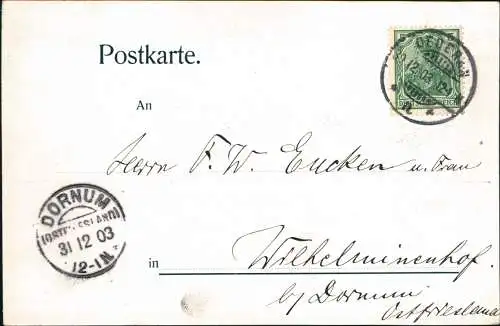 Postkarte.
An
Herrn F. W. Eucken u. Frau
in Wilhelminenhof.
by Dornum
Ostfriesland
DORNUM
(OSTFRIESLAND)
31 12 03
12-1N.